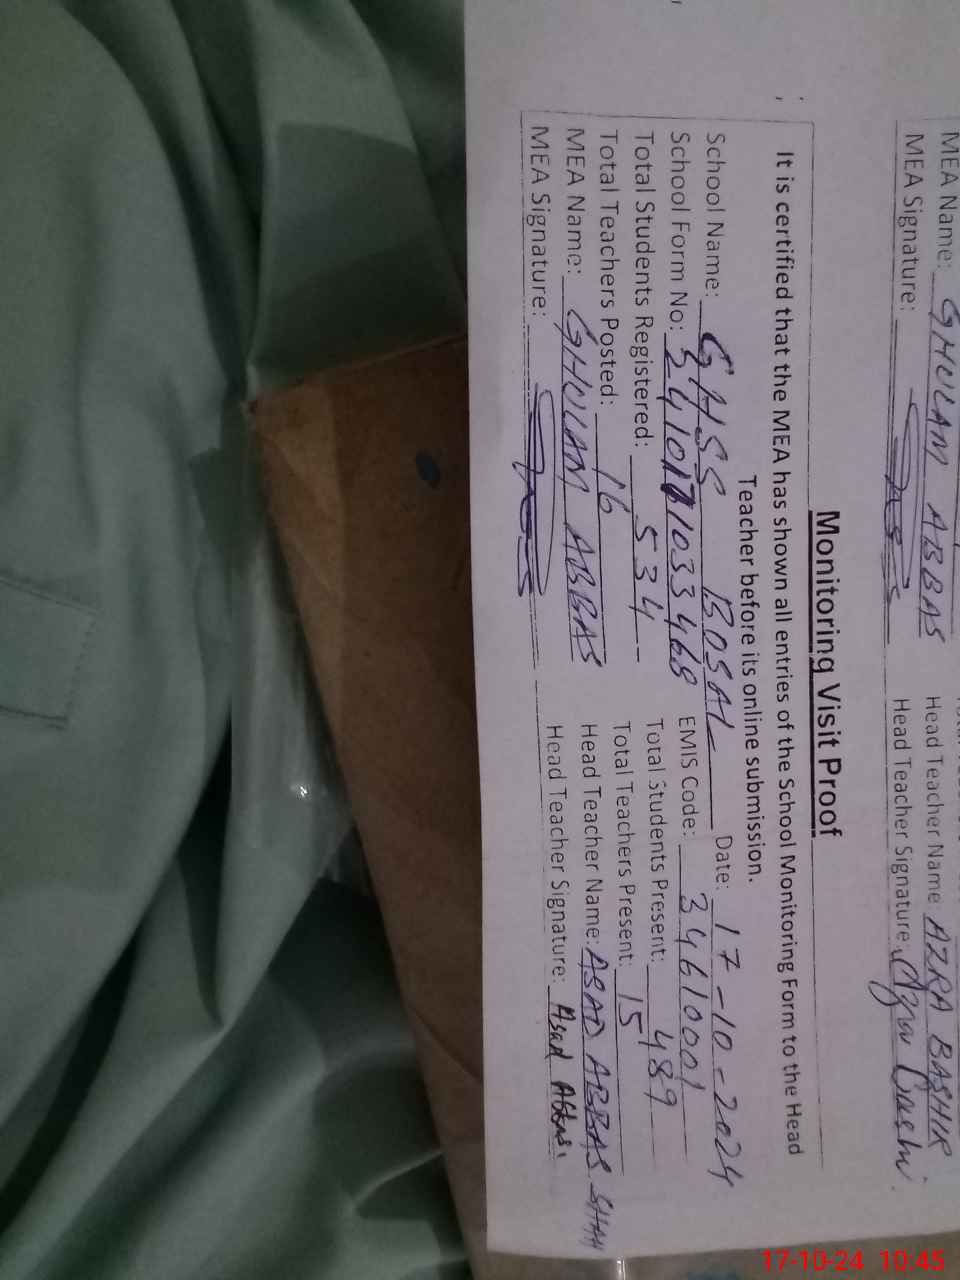 MEA Name: GHULAM ABBAS Head Teacher Name: AZRA BASHIR
MEA Signature: Head Teacher Signature: Azra Bashir
Monitoring Visit Proof
It is certified that the MEA has shown all entries of the School Monitoring Form to the Head
Teacher before its online submission.
School Name: GHSS BOSAL Date: 17-10-2024
School Form No: EMIS Code: 34610001
Total Students Registered: 534 Total Students Present: 489
Total Teachers Posted: 16 Total Teachers Present: 15
MEA Name: GHULAM ABBAS Head Teacher Name: ASAD ABBAS SHAH
MEA Signature: Head Teacher Signature: Asad Abbas
17-10-24 10:45